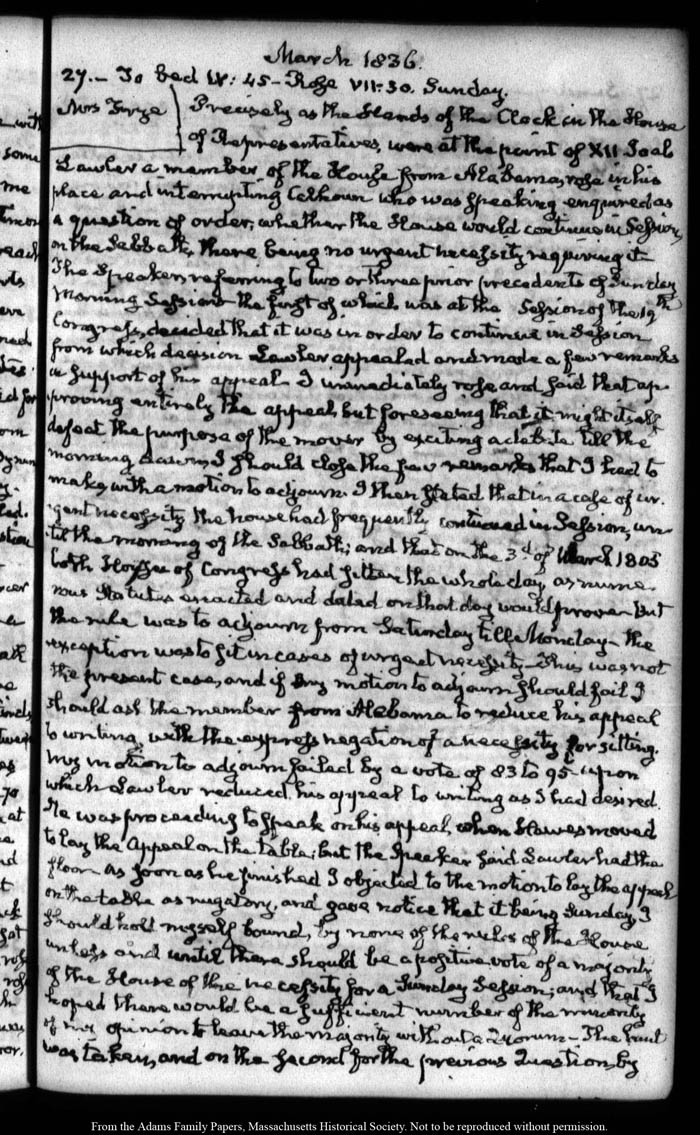 March 1836.
27.- To bed IV: 45- Rose VII-30. Sunday.
Mrs Frye
Precisely as the Hands of the Clock in the House
of Representatives, were at the point of XII Joab
Lawler a member of the House from Alabama, rose in his
place and interrupting Calhoun who was speaking enquired as
a question of order, whether the House would continue in Session,
on the Sabbath, there being no urgent necessity requiring it
The Speaker, referring to two or three prior precedents of Sunday
morning Sessions the first of which was at the Session of the 19th
Congress, decided that it was in order to continue in Session
from which decision Lawler appealed and made a few remarks
in support of his appeal. I immediately rose and said that ap-
proving entirely the appeal, but foreseeing that it might itself
defeat the purpose of the mover by exciting a debate till the
morning dawn, I should close the few remarks that I had to
make, with a motion to adjourn. I then stated that in a case of ur-
gent necessity the house had frequently continued in Session, un-
til the morning of the Sabbath; and that on the 3d. of March 1805
both Houses of Congress had sitten the whole day as nume-
rous Statutes enacted and dated on that day would prove- But
the rule was to adjourn from Saturday till Monday- the
exception was to sit in cases of urgent necessity- This was not
the present case, and if my motion to adjourn should fail I
should ask the member from Alabama to reduce his appeal
to writing, with the express negation of a necessity for sitting.
My motion to adjourn failed by a vote of 83 to 95 upon
which Lawler reduced his appeal to writing as I had desired.
He was proceeding to speak on his appeal, when Hawes moved
to lay the Appeal on the table; but the Speaker said Lawler had the
floor. As soon as he finished I objected to the motion to lay the appeal
on the table as nugatory, and gave notice that it being Sunday, I
should hold myself bound, by none of the rules of the House
unless and until there should be a positive vote of a majority
of the House of the necessity for a Sunday Session; and that I
hoped there would be a sufficient number of the minority
of my opinion to leave the majority without a Quorum- The
was taken, and on the second for the previous Question, by
From the Adams Family Papers, Massachusetts Historical Society. Not to be reproduced without permission.